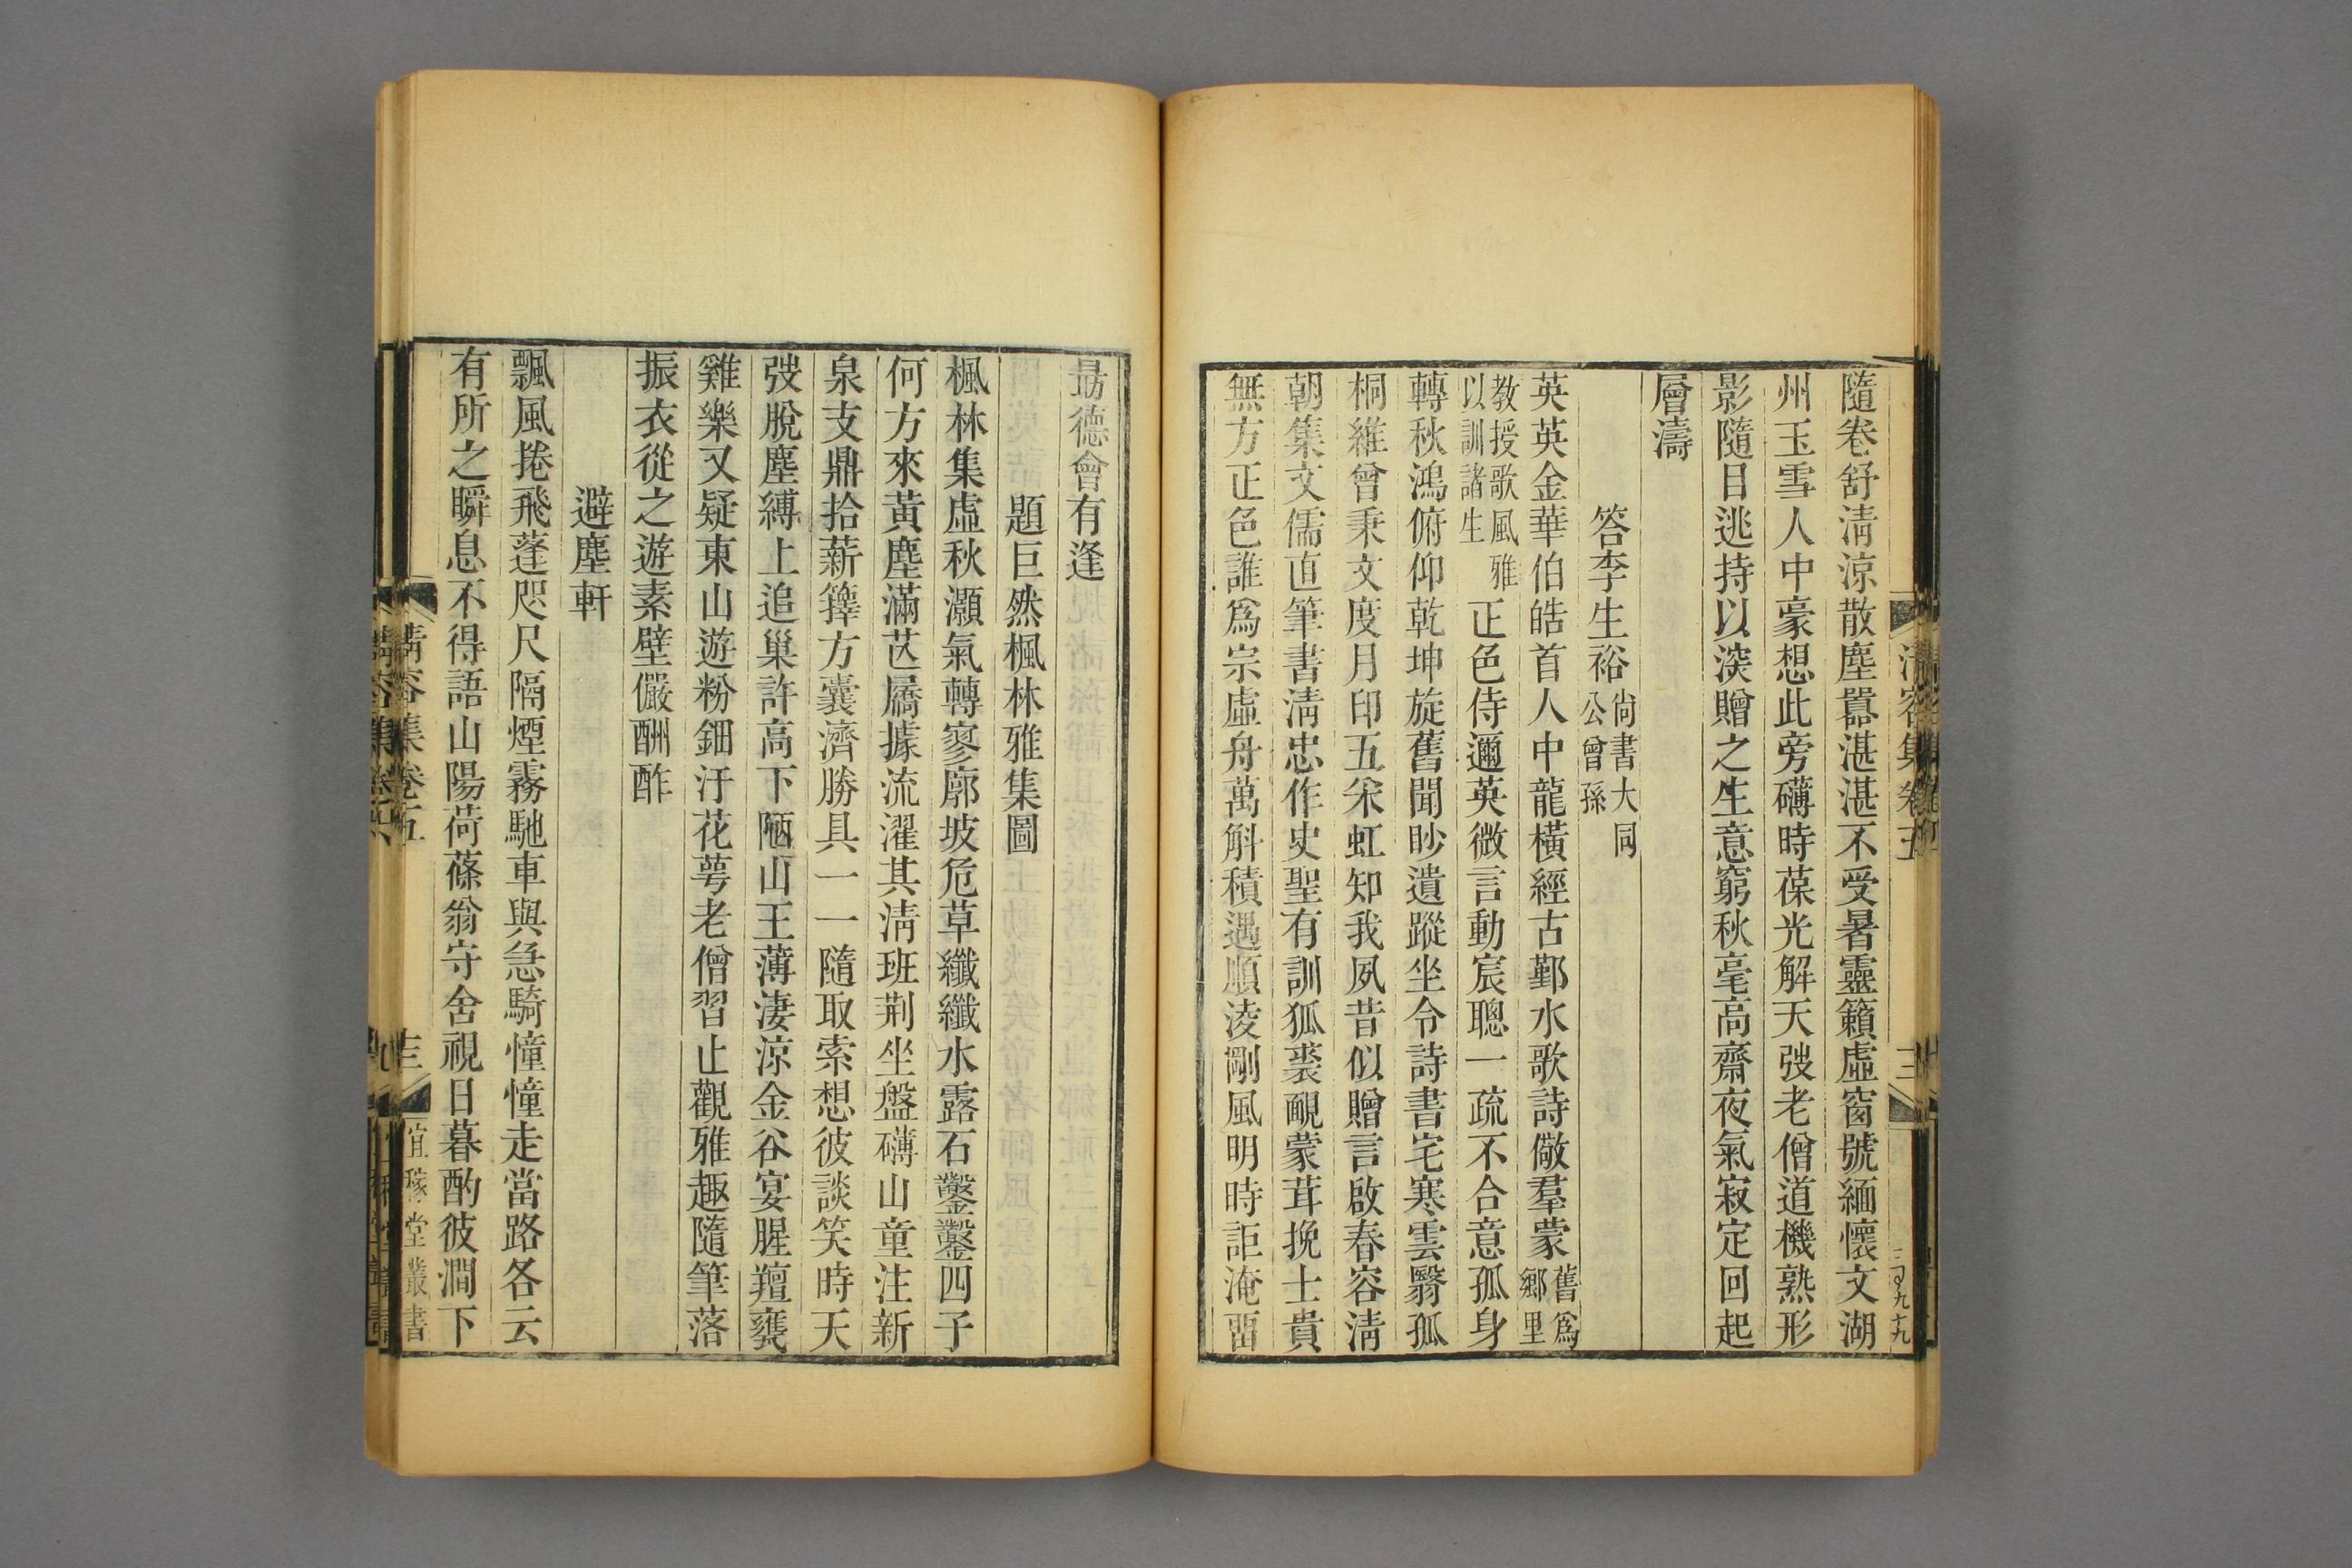 隨卷舒淸涼散塵囂湛湛不受暑靈籟虛窗號緬懷文湖
州玉雪人中豪想此旁礴時葆光解天弢老僧道機熟形
影隨日逃持以淡贈之生意窮秋毫高齋夜氣寂定回起
層濤
答李生裕尙書大同公曾孫
英英金華伯皓首人中龍橫經古鄞水歌詩儆羣蒙舊爲鄉里
教授歌風雅以訓諸生正色侍邇英微言動宸聰一疏不合意孤身
轉秋鴻俯仰乾坤旋舊聞眇遺蹤坐令詩書宅寒雲翳孤
桐維曾秉文度月印五采虹知我夙昔似贈言啟春容淸
朝集文儒直筆書淸忠作史聖有訓狐裘覼蒙茸挽士貴
無方正色誰爲宗虛舟萬斛積遇順淩剛風明時詎淹畱
勗德會有逢
題巨然楓林雅集圖
楓林集虛秋灝氣轉寥廓坡危草纖纖水露石鑿鑿四子
何方來黃塵滿芒屩據流濯其淸班荆坐盤礴山童注新
泉支鼎拾薪籜方囊濟勝具一一隨取索想彼談笑時天
弢脫塵縛上追巢許高下陋山王薄淒涼金谷宴腥羶甕
雞樂又疑東山遊粉鈿汙花萼老僧習止觀雅趣隨筆落
振衣從之遊素壁儼酬酢
避塵軒
飄風捲飛蓬咫尺隔煙霧馳車與急騎憧憧走當路各云
有所之瞬息不得語山陽荷蓧翁守舍視日暮酌彼澗下
淸容集卷五
三
宜稼堂叢書